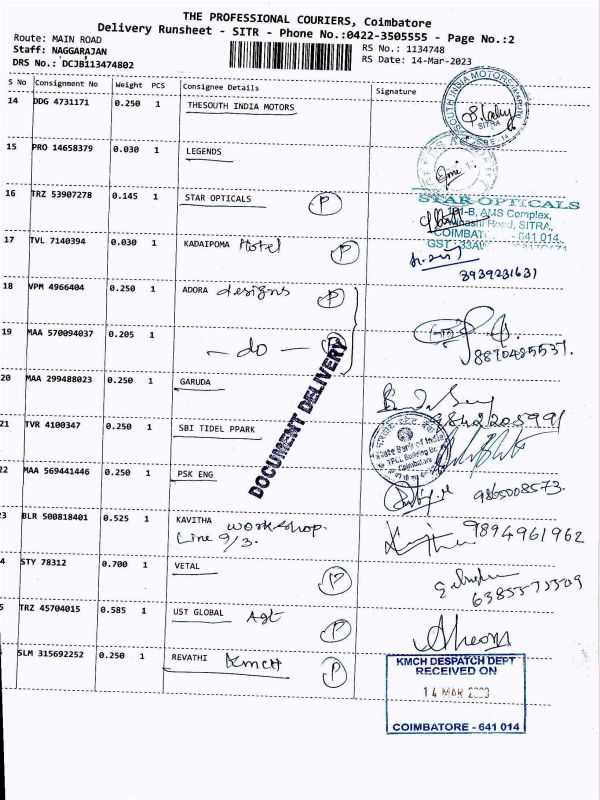 THE PROFESSIONAL COURIERS, Coimbatore
Delivery Runsheet - SITR - Phone No.:0422-3505555 - Page No.:2
Route: MAIN ROAD
Staff: NAGGARAJAN
DRS No.: DCJB113474802
RS No.: 1134748
RS Date: 14-Mar-2023
S No Consignment No Weight PCS Consignee Details Signature
14 DDG 4731171 0.250 1 THESOUTH INDIA MOTORS
SOUTH INDIA MOTORS
SITRA
15 PRO 14658379 0.030 1 LEGENDS
16 TRZ 53907278 0.145 1 STAR OPTICALS P
STAR OPTICALS
AMS Complex,
Road, SITRA,
641 014.
17 TVL 7140394 0.030 1 KADAIPOMA Hotel P
8939231631
18 VPM 4966404 0.250 1 ADORA designs P
19 MAA 570094037 0.205 1 - do -
8870485537.
DOCUMENT DELIVERY
20 MAA 299488023 0.250 1 GARUDA
9842205991
21 TVR 4100347 0.250 1 SBI TIDEL PPARK
State Bank of India
Coimbatore
22 MAA 569441446 0.250 1 PSK ENG
9865008573.
23 BLR 500818401 0.525 1 KAVITHA workshop.
Line 9/3.
9894961962
4 STY 78312 0.700 1 VETAL P
5 TRZ 45704015 0.585 1 UST GLOBAL Agt P
SLM 315692252 0.250 1 REVATHI KMCH P
KMCH DESPATCH DEPT
RECEIVED ON
14 MAR
COIMBATORE - 641 014